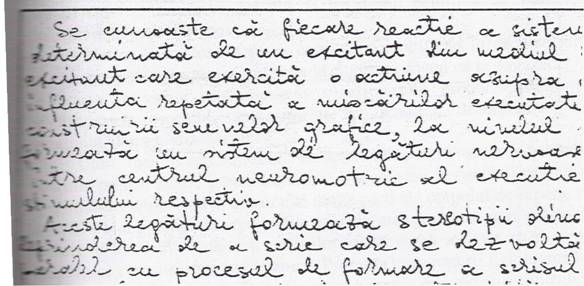 Se cunoaste că fiecare reactie a sistem
determinată de un excitant din mediul
excitant care exercită o actiune asupra
influenta repetată a miscărilor executate
construirii semnelor grafice, la nivelul
formează un sistem de legături nervoase
între centrul neuromotric al executie
stimulului respectiv.
Aceste legături formează stereotipii dina
deprinderea de a scrie care se dezvoltă
cu procesul de formare a scrisul